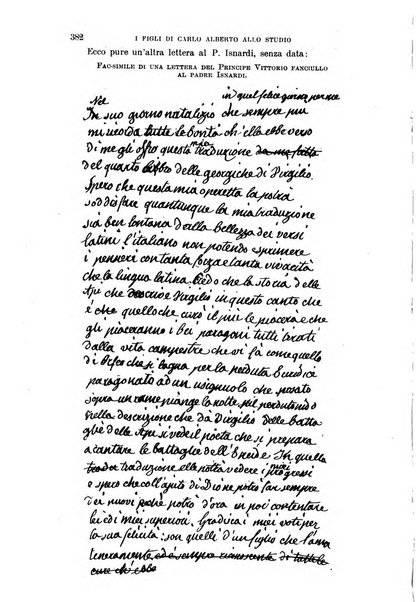 382
I FIGLI DI CARLO ALBERTO ALLO STUDIO
Ecco pure un'altra lettera al P. Isnardi, senza data:
FAC-SIMILE DI UNA LETTERA DEL PRINCIPE VITTORIO FANCIULLO
AL PADRE ISNARDI.
in quel felice giorno per me
Nel
In suo giorno natalizio che sempre più
mi ricorda tutte le bontà ch'ella ebbe verso
di me gli offro questa mia traduzione da me fatta
del quarto libro delle georgiche di Virgilio.
Spero che questa mia operetta la potrà
soddisfare quantunque la mia traduzione
sia ben lontana dalla bellezza dei versi
latini l'italiano non potendo esprimere
i penseri con tanta forza e tanta vivacità
che la lingua latina. Credo che la storia delle
Api che descrive Virgilio in questo canto che
è che quello che cuoi il più le piacerà e che
gli piaceranno i bei paragoni tutti tirati
dalla vita campestre che vi fa come quello
di Orfeo che si lagna per la perduta Euridice
paragonato ad un usignuolo che posato
sopra un ramo piange la notte sul perduto nido
nella descrizione che dà Virgilio delle batta
glie delle Api si vede il poeta che si prepara
a cantare le battaglie dell'Eneide. In quella
traduzione ella potrà vedere i miei progressi
e spero che coll'ajuto di Dio ne potrò far sempre
dei nuovi perché potrò d'ora in poi contentare
lei ed i miei superiori. Gradisca i miei voti per
la sua felicità: son quelli d'un figlio che l'ama
teneramente ed è sempre riconoscente di tutte le
cure ch'ebbe